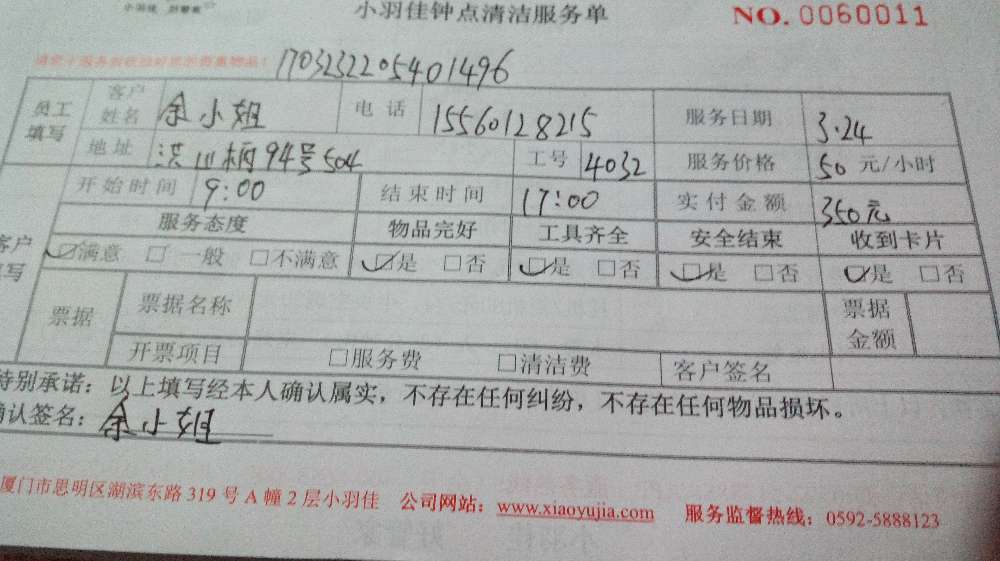 小羽佳钟点清洁服务单 NO. 0060011
1703232205401496
员工填写 客户姓名 余小姐 电话 15560128215 服务日期 3.24
地址 洪山柄94号504 工号 4032 服务价格 50 元/小时
开始时间 9:00 结束时间 17:00 实付金额 350元
服务态度 物品完好 工具齐全 安全结束 收到卡片
☑满意 □一般 □不满意 ☑是 □否 ☑是 □否 ☑是 □否 ☑是 □否
票据 票据名称 票据金额
开票项目 □服务费 □清洁费 客户签名
特别承诺：以上填写经本人确认属实，不存在任何纠纷，不存在任何物品损坏。
确认签名：余小姐
厦门市思明区湖滨东路 319 号 A 幢 2 层小羽佳 公司网站：www.xiaoyujia.com 服务监督热线：0592-5888123